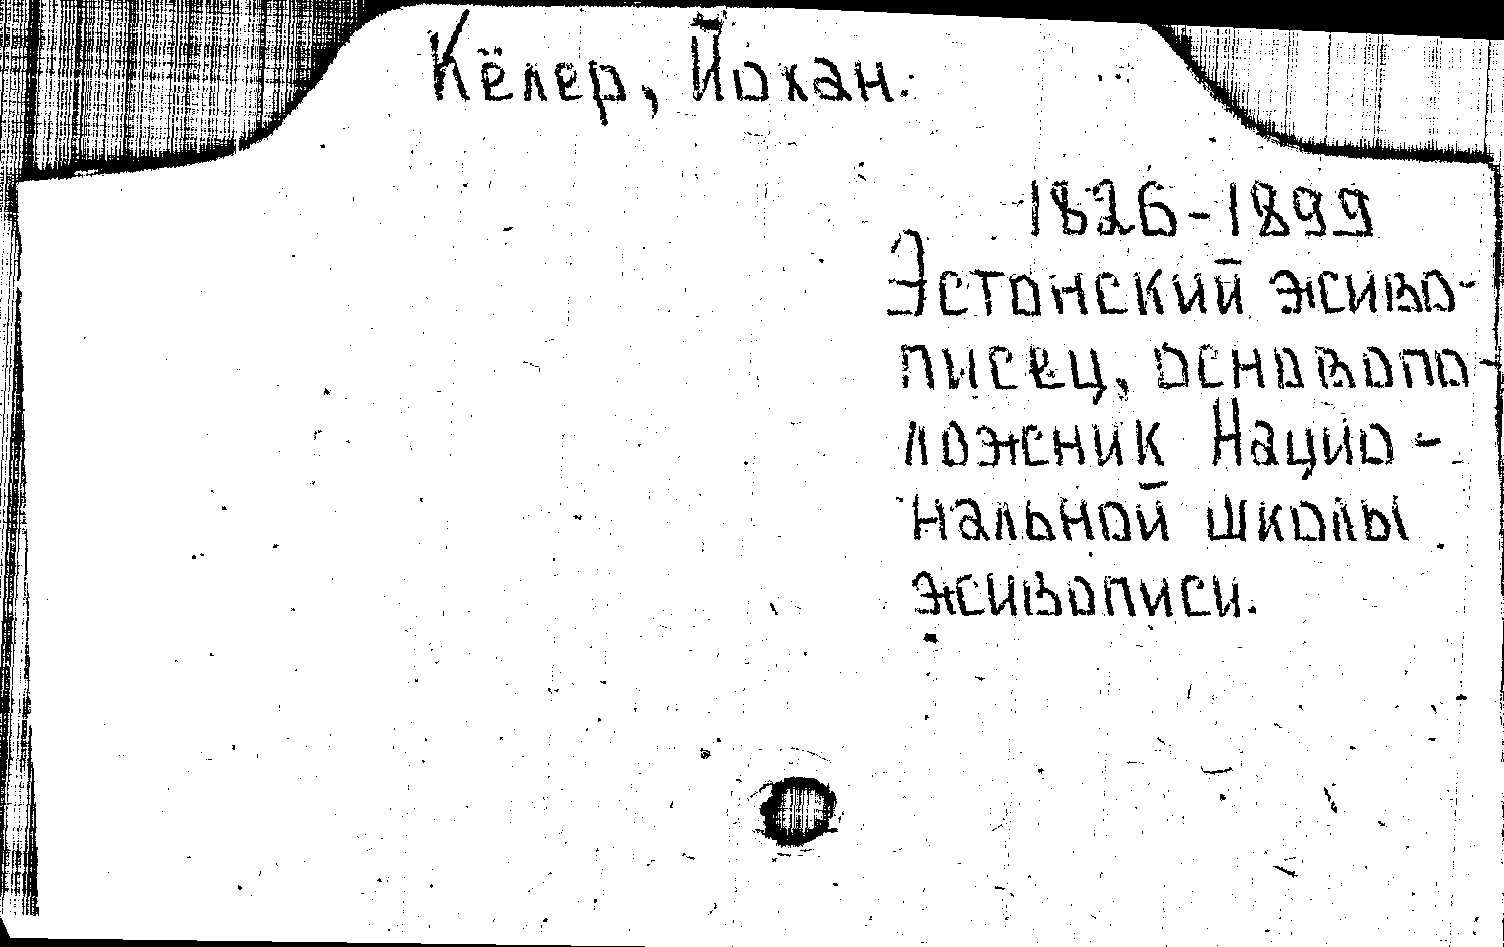 Кёлер, Йохан.
1826-1899
Эстонский живо-
писец, основопо-
ложник Нацио-
нальной школы
живописи.